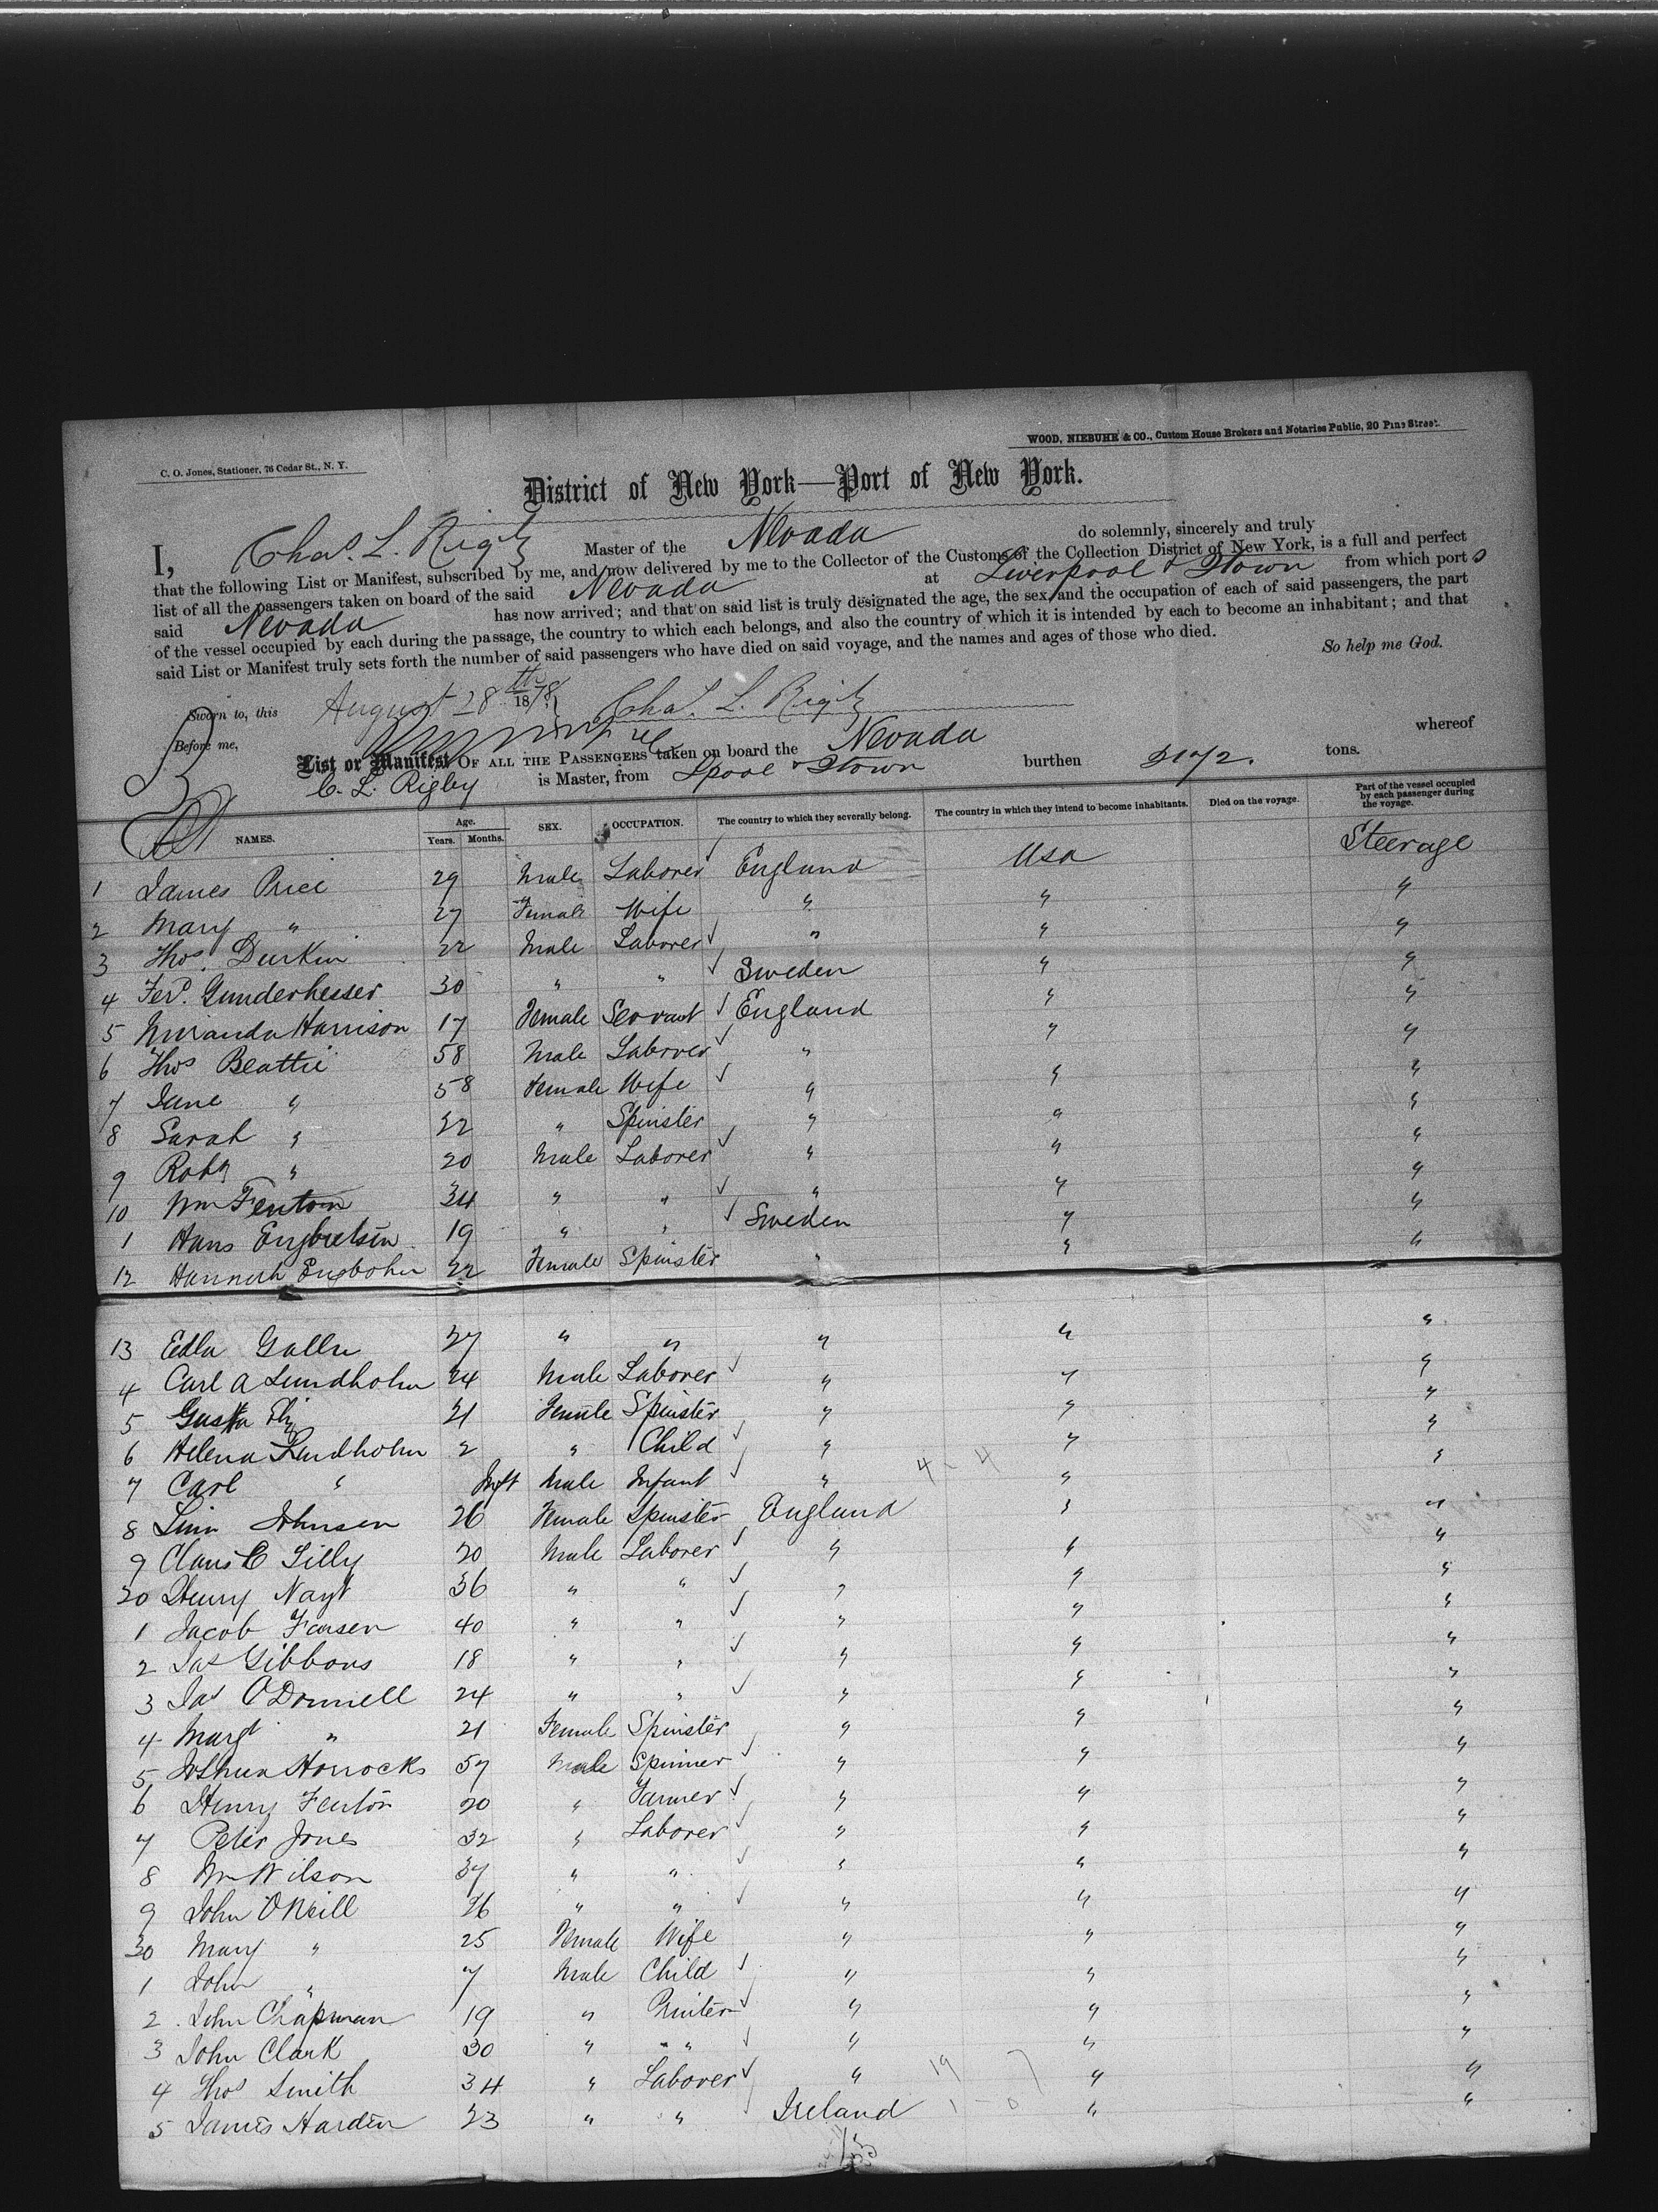 WOOD, NIEBUHR & CO., Custom House Brokers and Notaries Public, 20 Pine Street.
C. O. Jones, Stationer, 76 Cedar St., N. Y.
District of New York—Port of New York.
I, Chas. L. Rigby Master of the Nevada do solemnly, sincerely and truly
that the following List or Manifest, subscribed by me, and now delivered by me to the Collector of the Customs of the Collection District of New York, is a full and perfect
list of all the passengers taken on board of the said Nevada at Liverpool & Qtown from which ports
said Nevada has now arrived; and that on said list is truly designated the age, the sex and the occupation of each of said passengers, the part
of the vessel occupied by each during the passage, the country to which each belongs, and also the country of which it is intended by each to become an inhabitant; and that
said List or Manifest truly sets forth the number of said passengers who have died on said voyage, and the names and ages of those who died.
So help me God.
Sworn to, this August 28th 1878, Chas. L. Rigby
Before me,
List or Manifest OF ALL THE PASSENGERS taken on board the Nevada whereof
C. L. Rigby is Master, from Lpool & Qtown burthen tons.
NAMES. Age. Years. Months. SEX. OCCUPATION. The country to which they severally belong. The country in which they intend to become inhabitants. Died on the voyage. Part of the vessel occupied by each passenger during the voyage.
1 James Price 29 Male Laborer England USA Steerage
2 Mary " 27 Female Wife " " "
3 Thos. Durkin 22 Male Laborer " " "
4 Ferd. 30 " " Sweden " "
5 Miranda Harrison 17 Female Servant England " "
6 Thos Beattie 58 Male Laborer " " "
7 Jane " 58 Female Wife " " "
8 Sarah " 22 " Spinster " " "
9 Robt " 20 Male Laborer " " "
10 Wm Fenton 34 " " " " "
1 Hans 19 " " Sweden " "
12 Hannah 22 Female Spinster " " "
13 Edla 27 " " " " "
4 Carl A Lundholm 24 Male Laborer " " "
5 Gusta 21 Female Spinster " " "
6 Helena Lundholm 2 " Child " " "
7 Carl " Inft Male Infant " " "
8 Johnsen 26 Female Spinster England " "
9 Claus C Lilly 20 Male Laborer " " "
20 Henry 36 " " " " "
1 Jacob 40 " " " " "
2 Jas Gibbons 18 " " " " "
3 Jas O'Donnell 24 " " " " "
4 Margt " 21 Female Spinster " " "
5 Joshua Horrocks 57 Male Spinner " " "
6 Henry Fenton 20 " Farmer " " "
7 Peter Jones 32 " Laborer " " "
8 Wm Wilson 37 " " " " "
9 John O'Neill 26 " " " " "
30 Mary " 25 Female Wife " " "
1 John " 7 Male Child " " "
2 John Chapman 19 " Printer " " "
3 John Clark 30 " " " " "
4 Thos Smith 34 " Laborer " " "
5 James Harden 23 " " Ireland " "